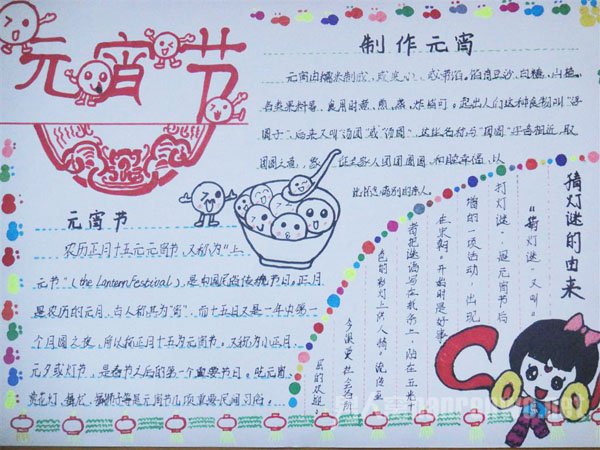 元宵节
制作元宵
元宵由糯米制成,或实心,或带馅。馅有豆沙、白糖、山楂、
各类果料等,食用时煮、煎、蒸、炸皆可。起初人们这种食物叫“浮
圆子”,后来又叫“汤团”或“汤圆”,这些名称与“团圆”字音相近,取
团圆之意,象征全家人团团圆圆,和睦幸福,以
此怀念离别的亲人
元宵节
农历正月十五元元宵节,又称为“上
元节”(the Lantern Festival),是中国民俗传统节日。正月
是农历的元月,古人称其为“宵”,而十五日又是一年中第一
个月圆之夜,所以称正月十五为元宵节。又称为小正月、
元夕或灯节,是春节之后的第一个重要节日。吃元宵、
赏花灯、舞龙、舞狮子等是元宵节几项重要民间习俗。
猜灯谜的由来
“猜灯谜”又叫“
打灯谜”是元宵节后
增的一项活动,出现
在宋朝。开始时是好事
者把谜语写在纸条上,贴在五光
色的彩灯上供人猜。